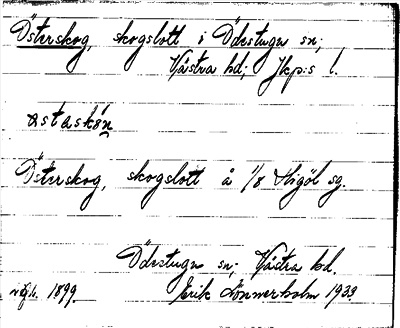 Österskog, skogslott i Ödestugu sn;
Västra hd; Jkp:s l.
astaskón
Österskog, skogslott å 1/8 Stigöl sg.
Ödestugu sn; Västra hd.
1899. Erik Lönnerholm 1933